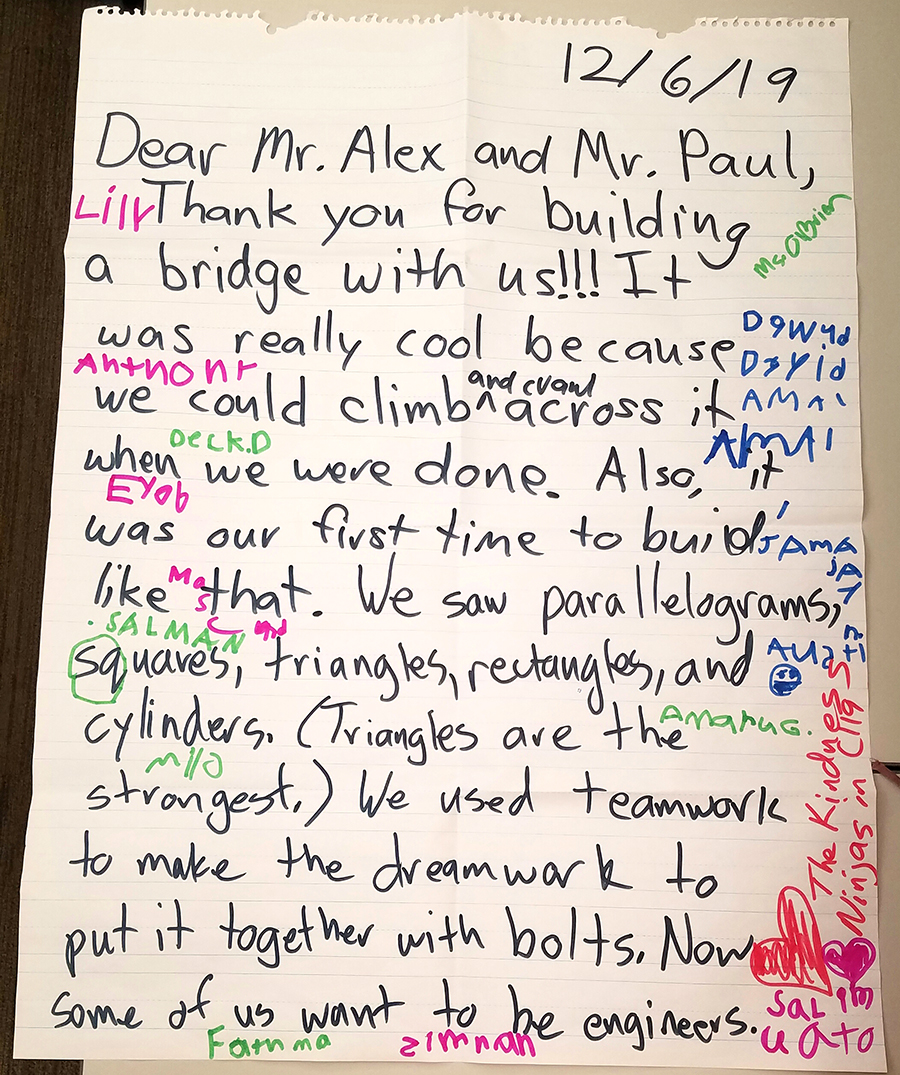 12/6/19
Dear Mr. Alex and Mr. Paul,
Lily
Thank you for building
Ms. O'Brien
a bridge with us!!! It
was really cool because
Dawud
David
Anthony
we could climb ^ and crawl across it
AMAL
AMAl
Deck.D
when we were done. Also, it
Eyob
was our first time to build
JAmA
JA
like that. We saw parallelograms,
SALMAN
squares, triangles, rectangles, and
cylinders. (Triangles are the
Amanus.
Milo
strongest.) We used teamwork
to make the dreamwork to
put it together with bolts. Now
The Kindness
Ninjas in C119
some of us want to be engineers.
Fatnma
zimnan